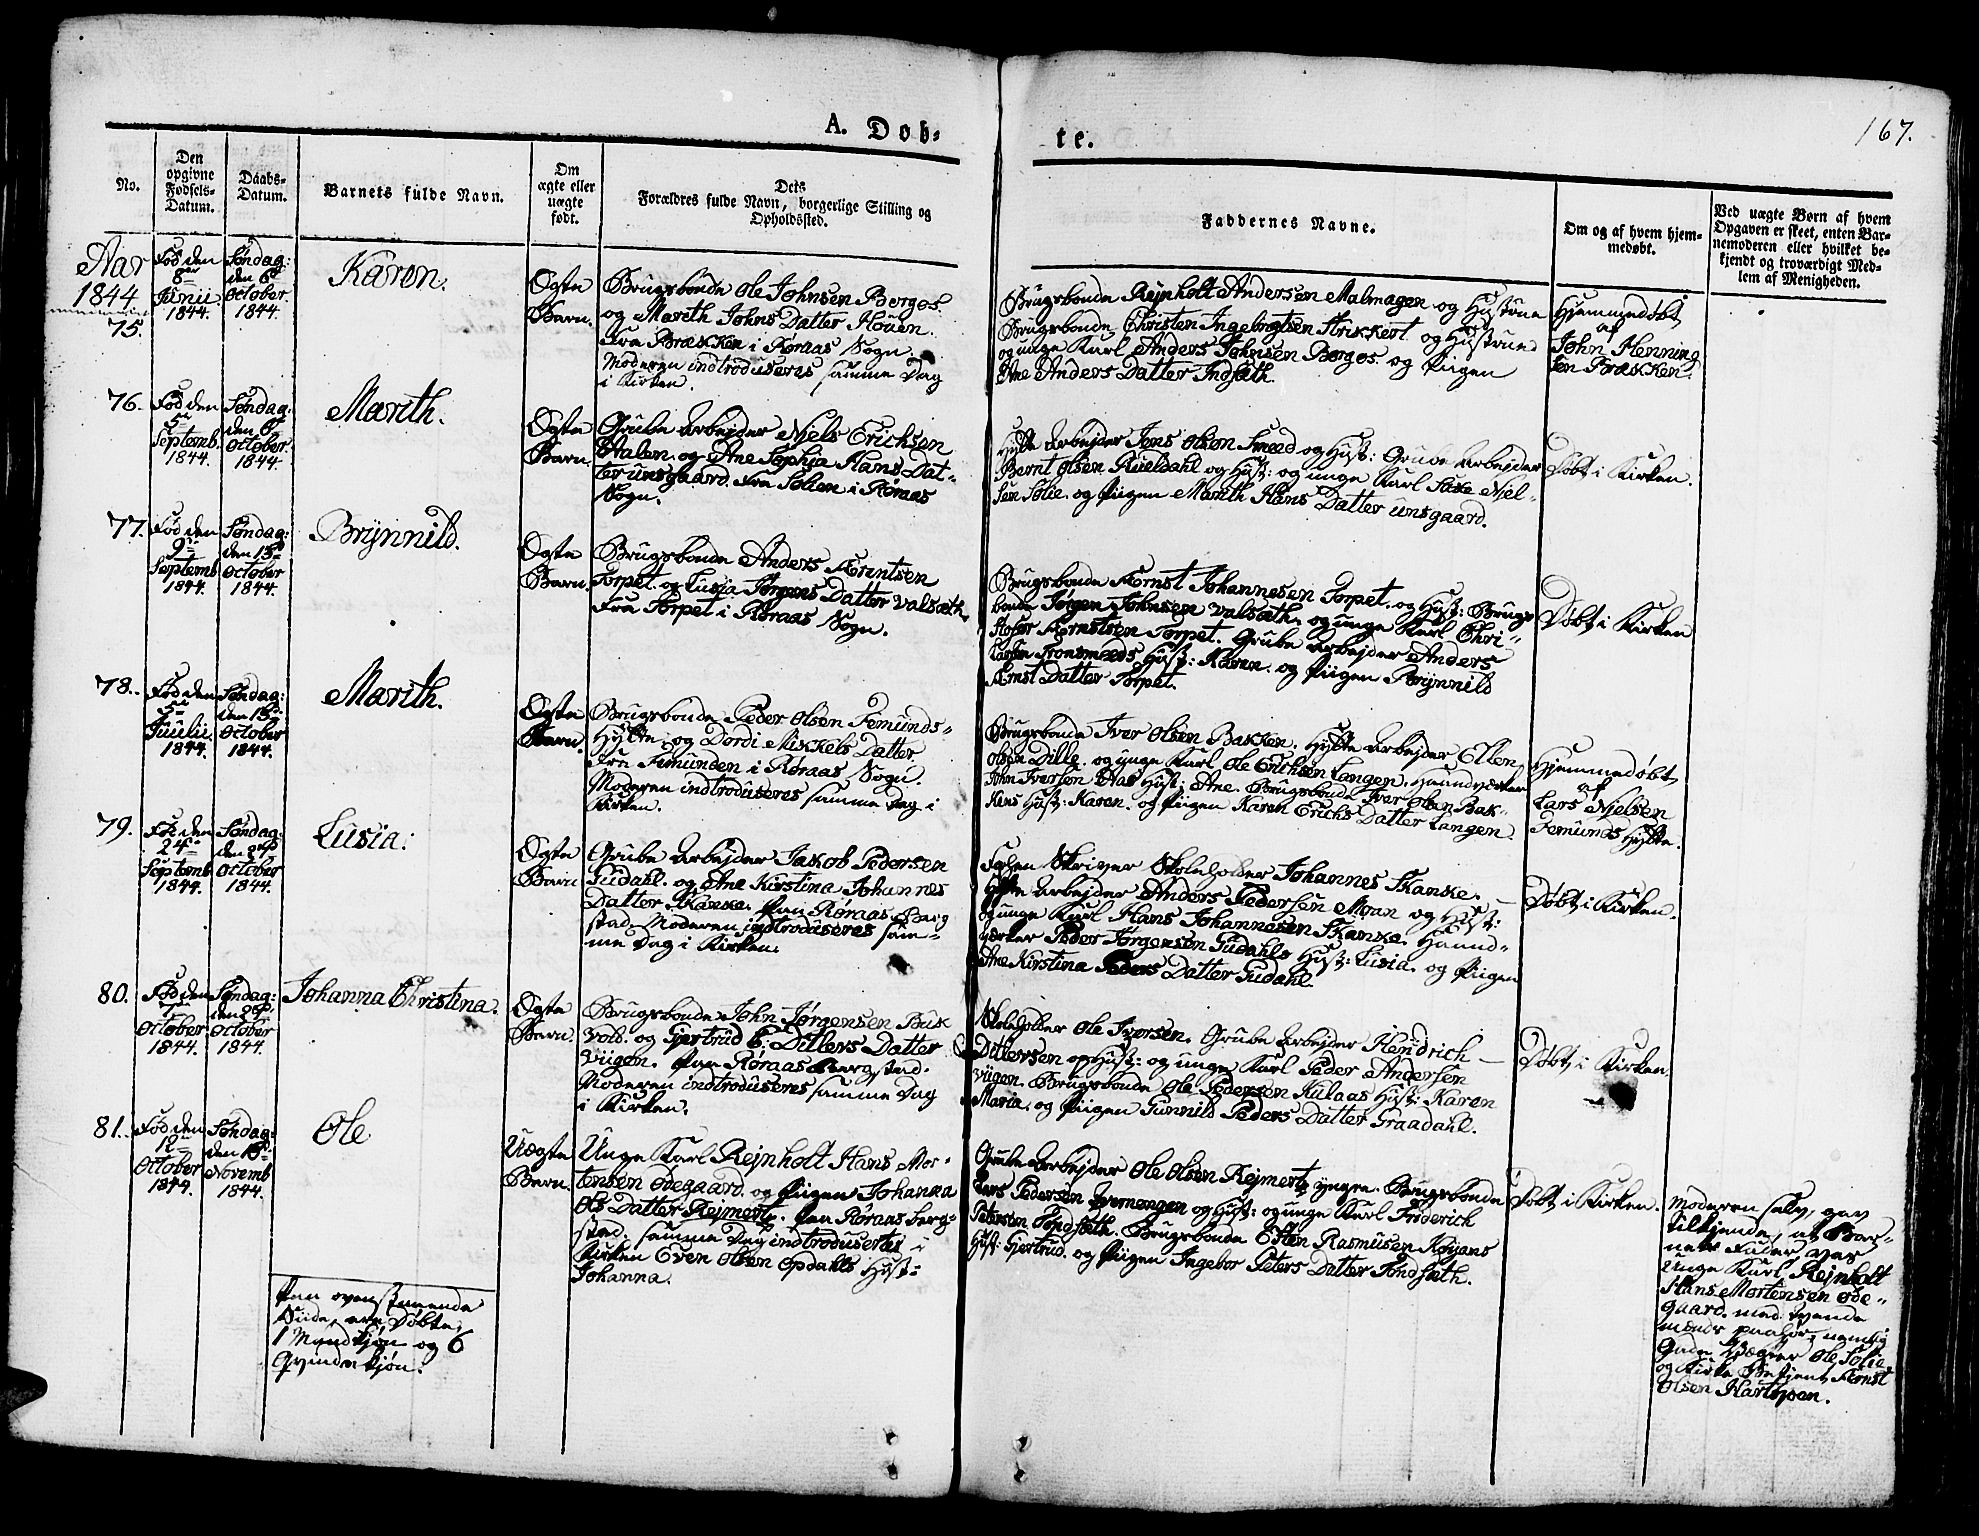 A. Døb-
te.
167.
No.
Den opgivne Fødsels-Datum.
Daabs-Datum.
Barnets fulde Navn.
Om ægte eller uægte født.
Dets
Forældres fulde Navn, borgerlige Stilling og
Opholdssted.
Faddernes Navne.
Om og af hvem hjem-
medøbt.
Ved uægte Børn af hvem
Opgaven er skeet, enten Bar-
nemoderen eller hvilket be-
kjendt og troværdigt Med-
lem af Menigheden.
Aar
1844
75.
Fød den
8de
Junii
1844.
Søndag:
den 6te
October
1844.
Karen.
Ægte
Barn.
Brugsbonde Ole Johnsen Borgos.
og Marith Johns Datter Houen.
Fra Brækken i Røraas Sogn.
Moderen indtroduseres samme Dag
i Kirken.
Brugsbonde Rejnholt Andersen Malmagen og Hustrue
Brugsbonde Christen Ingebrigtsen Strikkert og Hustrue
og unge Karl Anders Johnsen Borgos. og Piigen
Ane Anders Datter Indsæth.
Hjemmedøbt
af
John Henning
sen Brækken.
76.
Fød den
5te
Septemb.
1844.
Søndag:
den 6te
October
1844.
Marith.
Ægte
Barn.
Grube Arbejder Njels Erichsen
Aalen. og Ane Sophja Hans Dat-
ter unsgaard. Fra Solien i Røraas
Sogn.
Hytte Arbejder Jens Olsen Smeed og Hust: Grube Arbejder
Bernt Olsen Ruelsdahl og Hust: og unge Karl Njel-
sen Solie. og Piigen Marith Hans Datter unsgaard.
Døbt i Kirken.
77.
Fød den
9de
Septemb
1844.
Søndag:
den 13de
October
1844.
Brynnild.
Ægte
Barn.
Brugsbonde Anders Ærnstsen
Torpet. og Lusia Jørgens Datter Valsæth.
Fra Torpet i Røraas Sogn.
Brugsbonde Ærnst Johannesen Torpet. og Hust: Brugs
bonde Jørgen Johnsen Valsæth. og unge Karl Chri-
stofer Ærnstsen Torpet. Grube Arbejder Anders
Larsen Tronsmoeds Hust: Karen. og Piigen Brynnild
Ærnst Datter Torpet.
Døbt i Kirken
78.
Fød den
5te
Juulii
1844.
Søndag:
den 13de
October
1844.
Marith.
Ægte
Barn.
Brugsbonde Peder Olsen Femunds-
Hytte. og Dordi Mikkels Datter
Fra Femunden i Røraas Sogn.
Moderen indtroduseres samme Dag i
Kirken.
Brugsbonde Iver Olsen Bakken. Hytte Arbejder Ellen
Olsen Dille. og unge Karl Ole Erichsen Langen. Haandværker
John Iversen Aas Hust: Ane. Brugsbonde Iver Olsen Bak-
kens Hust: Karen. og Piigen Karen Erichs Datter Langen
Hjemmedøbt
af
Lars Njelsen
Femunds Hytte.
79.
Fød den
24de
Septemb
1844.
Søndag:
den 20de
October
1844.
Lusia:
Ægte
Barn
Grube Arbejder Jakob Pedersen
Gudahl. og Ane Kirstina Johannes
Datter Skanke. Paa Røraas Berg
stad. Moderen indtroduseres sam-
me Dag i Kirken.
Skriver Skoleholder Johannes Skanke.
Hytte Arbejder Anders Pedersen Moan og Hust:
og unge Karl Hans Johannesen Skanke. Haand-
værker Peder Jørgensen Gudahls Hust: Lusia. og Piigen
Ane Kirstina Peders Datter Gudahl.
Døbt i Kirken.
80.
Fød den
7de
October
1844.
Søndag:
den 20de
October
1844.
Johanna Christina.
Ægte
Barn.
Brugsbonde John Jørgensen Buk
vold. og Gjertrud E: Ditlers Datter
Viigen. Paa Røraas Bergstad.
Moderen indtroduseres samme Dag
i Kirken.
Skoleholder Ole Iversen. Grube Arbejder Hendrich
Dittersen og Hust: og unge Karl Peder Andersen
Viigen. Brugsbonde Ole Pedersen Kulaas Hust: Karen
Maria. og Piigen Gunnild Peders Datter Graadahl.
Døbt i Kirken.
81.
Fød den
12te
October
1844.
Søndag:
den
Novemb
1844.
Ole
Uægte
Barn.
Unge Karl Rejnholt Hans Mor-
tensen Ødegaard. og Piigen Johanna
Ols Datter Rejmertz. Paa Røraas Berg-
stad. samme Dag indtroduserte i
Kirken Even Olsen Opdahls Hust:
Johanna.
Grube Arbejder Ole Olsen Rejmertz yngre. Brugsbonde
Lars Pedersen og Hust: og unge Karl Friderich
Petersen Tondsæth. Brugsbonde Esten Rasmusen Kojans
Hust: Gjertrud. og Piigen Ingebor Peters Datter Tondsæth.
Døbt i Kirken.
Moderen selv, gav
tilkjende, at Bar-
nets Fader var
Unge Karl Rejnholt
Hans Mortensen Øde-
gaard. med tvende
mænds paahør, nemlig
Gade Vægter Ole Solie
og Kirke Betjent Ærnst
Olsen Hartopen.
Paa ovenstaaende
Side, ere Døbte,
1 Mandkjøn og 6
Qvindekjøn.